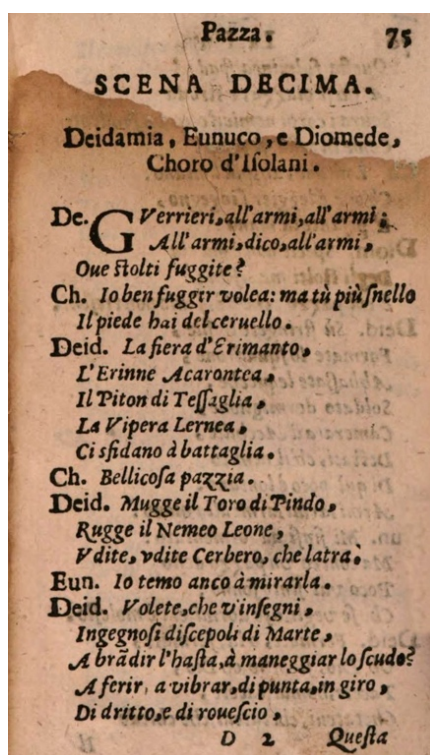 Pazza. 75
SCENA DECIMA.
Deidamia, Eunuco, e Diomede,
Choro d'Isolani.
De. GVerrieri, all'armi, all'armi;
All'armi, dico, all'armi,
Oue stolti fuggite?
Ch. Io ben fuggir volea: ma tù più snello
Il piede hai del ceruello.
Deid. La fiera d'Erimanto,
L'Erinne Acarontea,
Il Piton di Tessaglia,
La Vipera Lernea,
Ci sfidano à battaglia.
Ch. Bellicosa pazzia.
Deid. Mugge il Toro di Pindo,
Rugge il Nemeo Leone,
Vdite, vdite Cerbero, che latra.
Eun. Io temo anco à mirarla.
Deid. Volete, che v'insegni,
Ingegnosi discepoli di Marte,
A brãdir l'hasta, à maneggiar lo scudo?
A ferir, a vibrar, di punta, in giro,
Di dritto, e di rouescio,
D 2 Questa